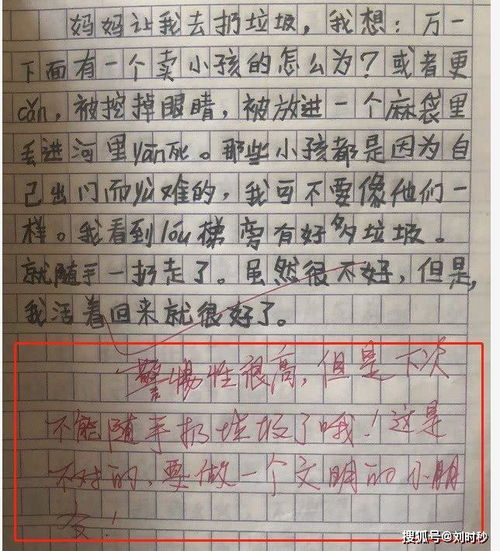 妈妈让我去扔垃圾，我想：万一
下面有一个卖小孩的怎么为？或者更
cǎn，被挖掉眼睛，被放进一个麻袋里
丢进河里yān死。那些小孩都是因为自
己出门而公难的，我可不要像他们一
样。我看到lóu梯旁有好多垃圾。
就随手一扔走了。虽然很不好，但是，
我活着回来就很好了。
警惕性很高，但是下次
不能随手扔垃圾了哦！这是
不对的，要做一个文明的小朋
友！
搜狐号@刘时秒